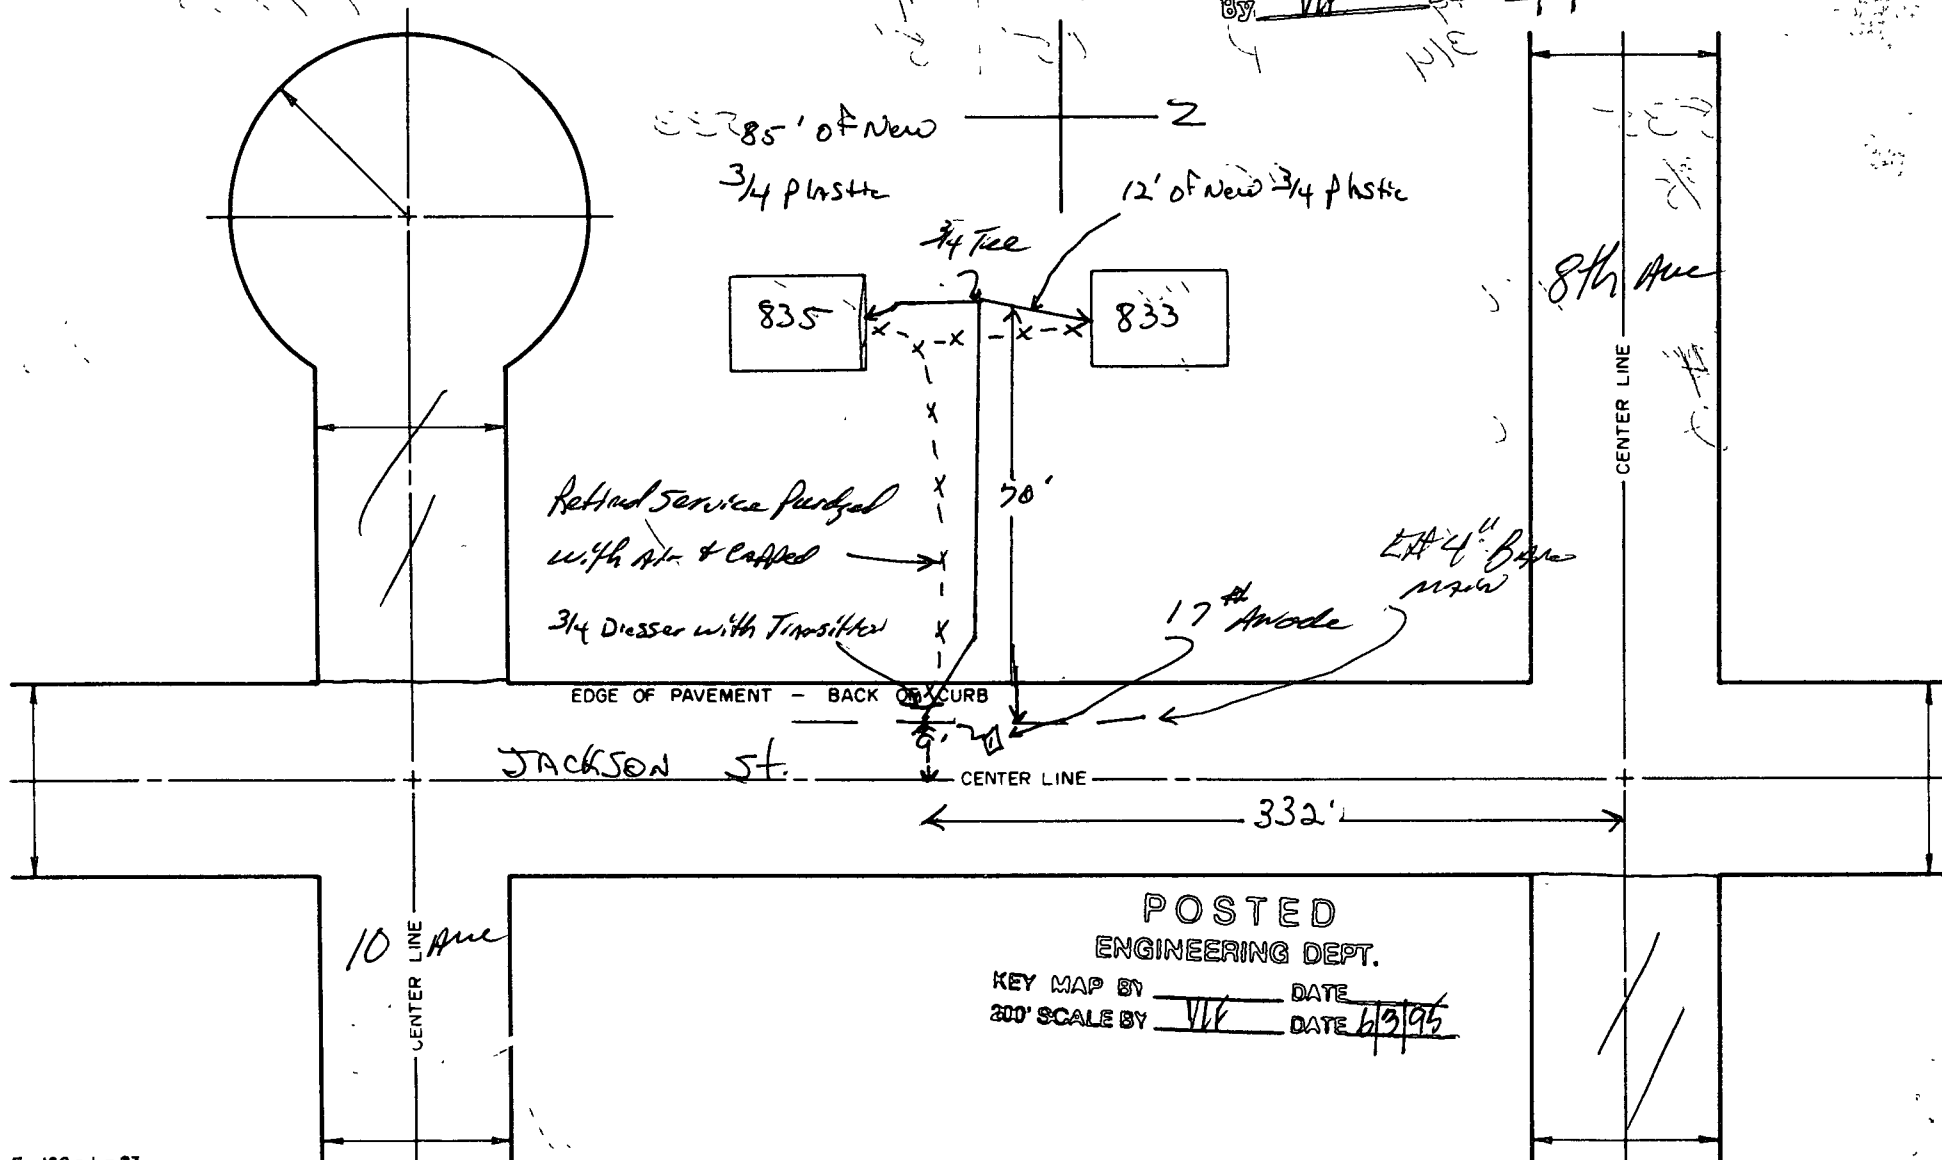 By
85' of New
3/4 Plastic
Z
12' of New 3/4 Plastic
3/4 Tee
835
833
8th Ave
CENTER LINE
70'
Retired Service Purdged
with Air & Capped
Ex 4" Bare
main
17# Anode
3/4 Dresser with Transition
EDGE OF PAVEMENT - BACK OF CURB
9'
JACKSON St.
CENTER LINE
332'
10 Ave
CENTER LINE
POSTED
ENGINEERING DEPT.
KEY MAP BY DATE
200' SCALE BY DATE 6/3/95